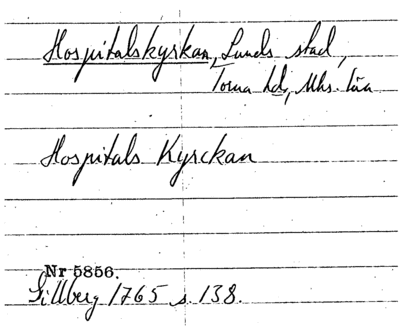 Hospitalskyrkan, Lunds stad,
Torna hd, Mhs. län
Hospitals Kyrckan
Nr 5856.
Gillberg 1765 s. 138.